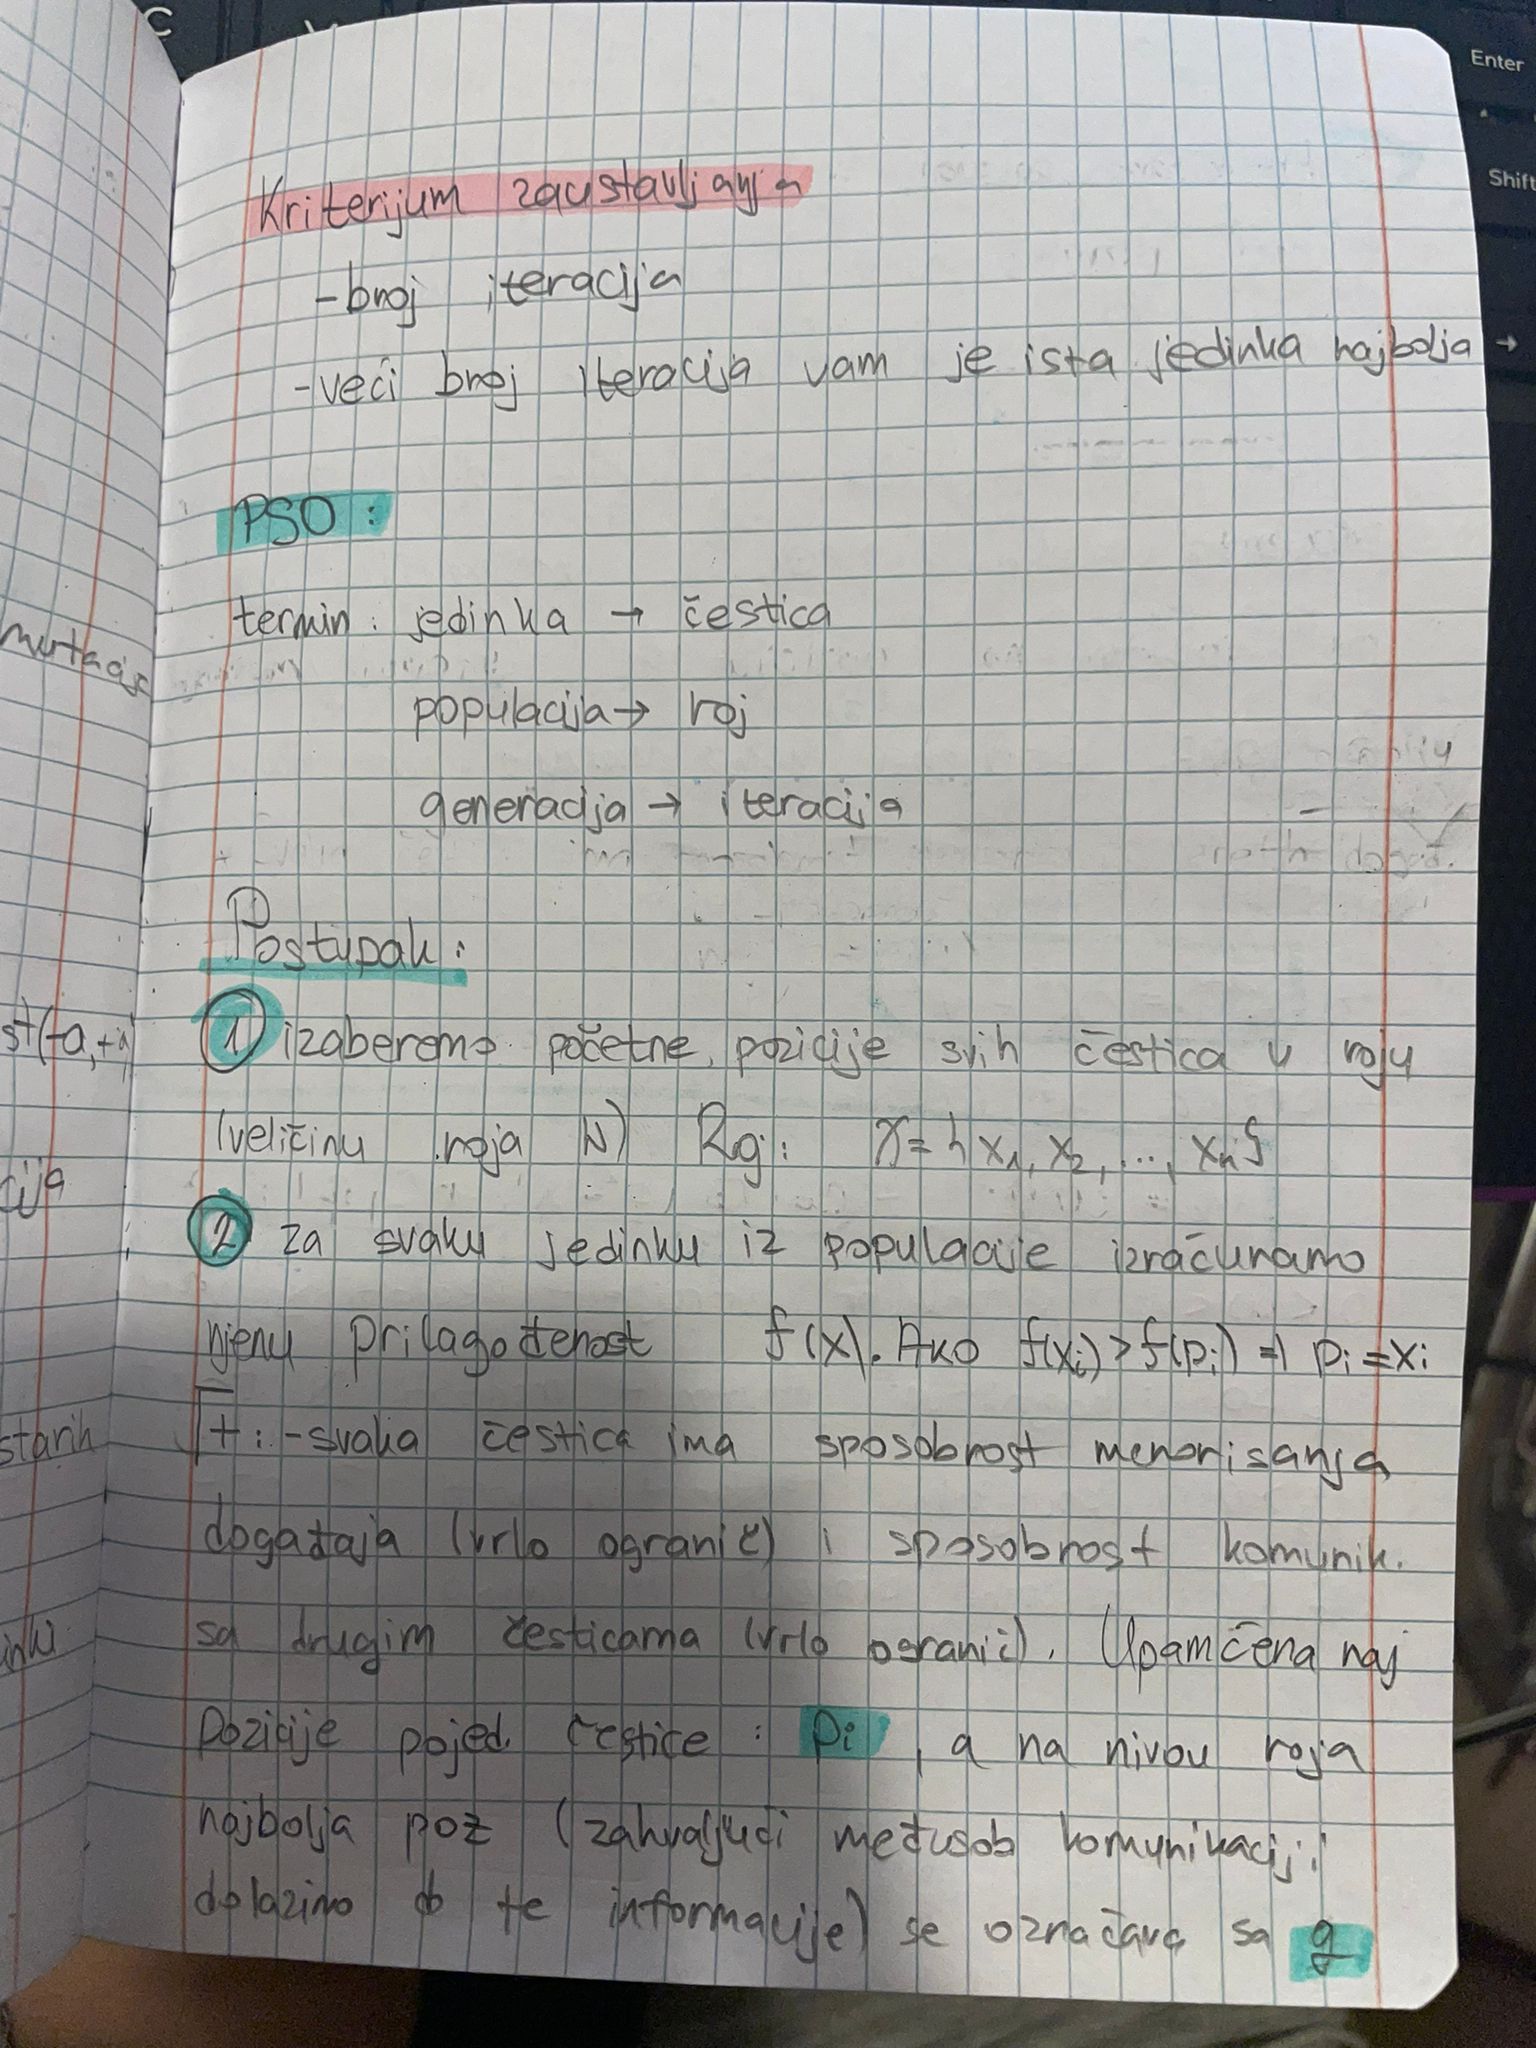 Kriterijum zaustavljanja
-broj iteracija
-veći broj iteracija vam je ista jedinka najbolja
PSO:
termin: jedinka → čestica
populacija → roj
generacija → iteracija
Postupak:
① izaberemo početne pozicije svih čestica u roju
(veličinu roja N) Roj: X={x1, x2, ..., xn}
② za svaku jedinku iz populacije izračunamo
njenu prilagođenost f(x). Ako f(xi)>f(pi) => pi=xi
+: -svaka čestica ima sposobnost memorisanja
događaja (vrlo ogranič) i sposobnost komunik.
sa drugim česticama (vrlo ogranič). Upamćena naj
pozicije pojed. čestice: pi, a na nivou roja
najbolja poz (zahvaljući međusob komunikaciji
dolazimo do te informacije) se označava sa g
mutacije
st(-a,+a)
cija
starih
inki
Enter
Shift
C